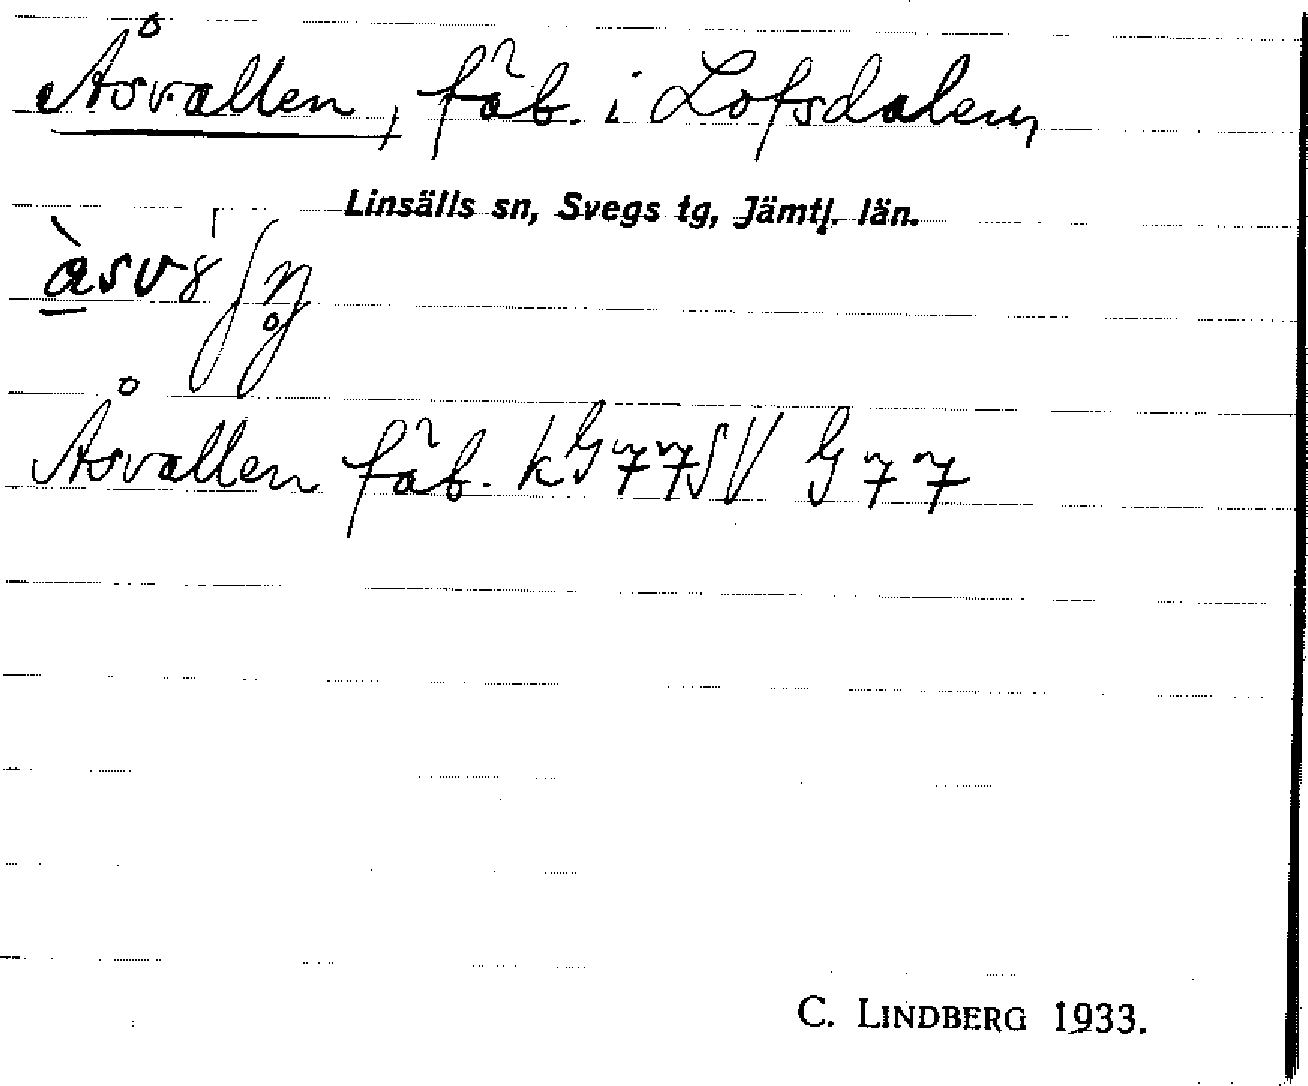 Åsvallen, fäb. i Lofsdalen
Linsälls sn, Svegs tg, Jämtl. län.
Åsvallen fäb. k G 77 SV G 77
C. LINDBERG 1933.